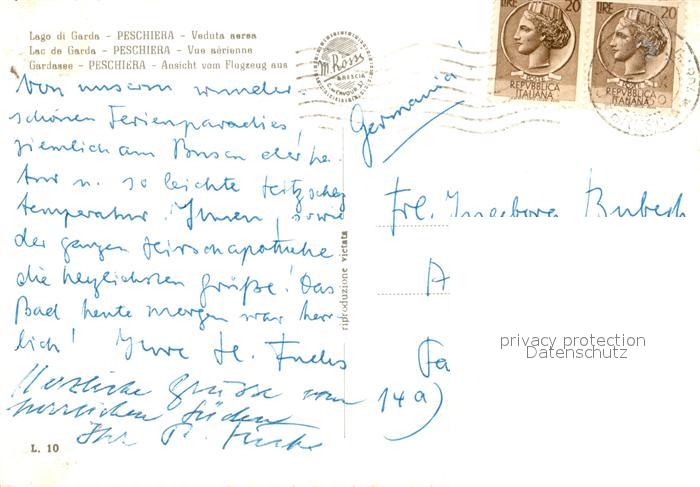 Lago di Garda - PESCHIERA - Veduta aerea
Lac de Garda - PESCHIERA - Vue aérienne
Gardasee - PESCHIERA - Ansicht vom Flugzeug aus
M. Rossi
BRESCIA
LIRE 20
POSTE
REPVBBLICA
ITALIANA
LIRE 20
POSTE
REPVBBLICA
ITALIANA
Germania
Von unserm wunder-
schönen Ferienparadies,
ziemlich am Busen der Na-
tur u. so leichte
temperatur. Ihnen, sowie
der ganzen Hirschapotheke
die herzlichsten Grüße! Das
Bad heute morgen war herr-
lich! Ihre H. Fuchs
Herzliche Grüsse vom
herrlichen Süden
Ihr Fuchs
riproduzione vietata
Frl. Ingeborg Bubeck
A
Fa
14a)
privacy protection
Datenschutz
L. 10